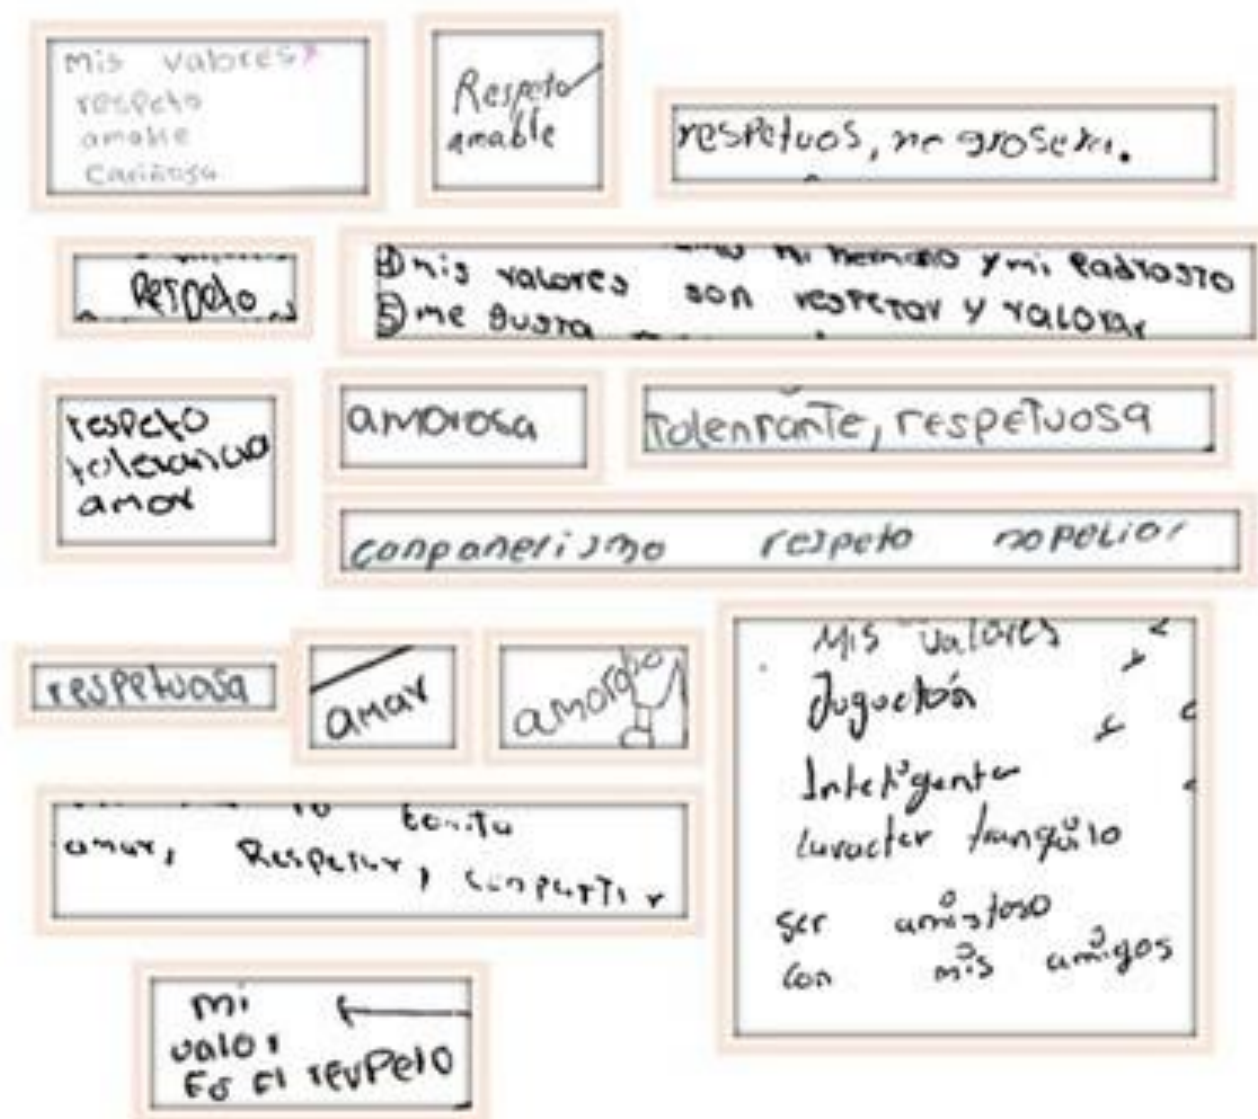 Mis valores
respeto
amable
Cariñosa
Respeto
amable
respetuos, no grosera.
Respeto
mi hermano y mi padrastro
4) mis valores son respetar y valorar
5) me gusta
respeto
tolerancia
amor
amorosa
Tolenrante, respetuosa
conpanerismo respeto no peliar
respetuosa
amar
amorosa
Mis valores
Juguetón
Inteligente
Caracter tranquilo
ser amistoso
con mis amigos
bonito
amar, Respetar, conpartir
mi
valor
Es El respeto